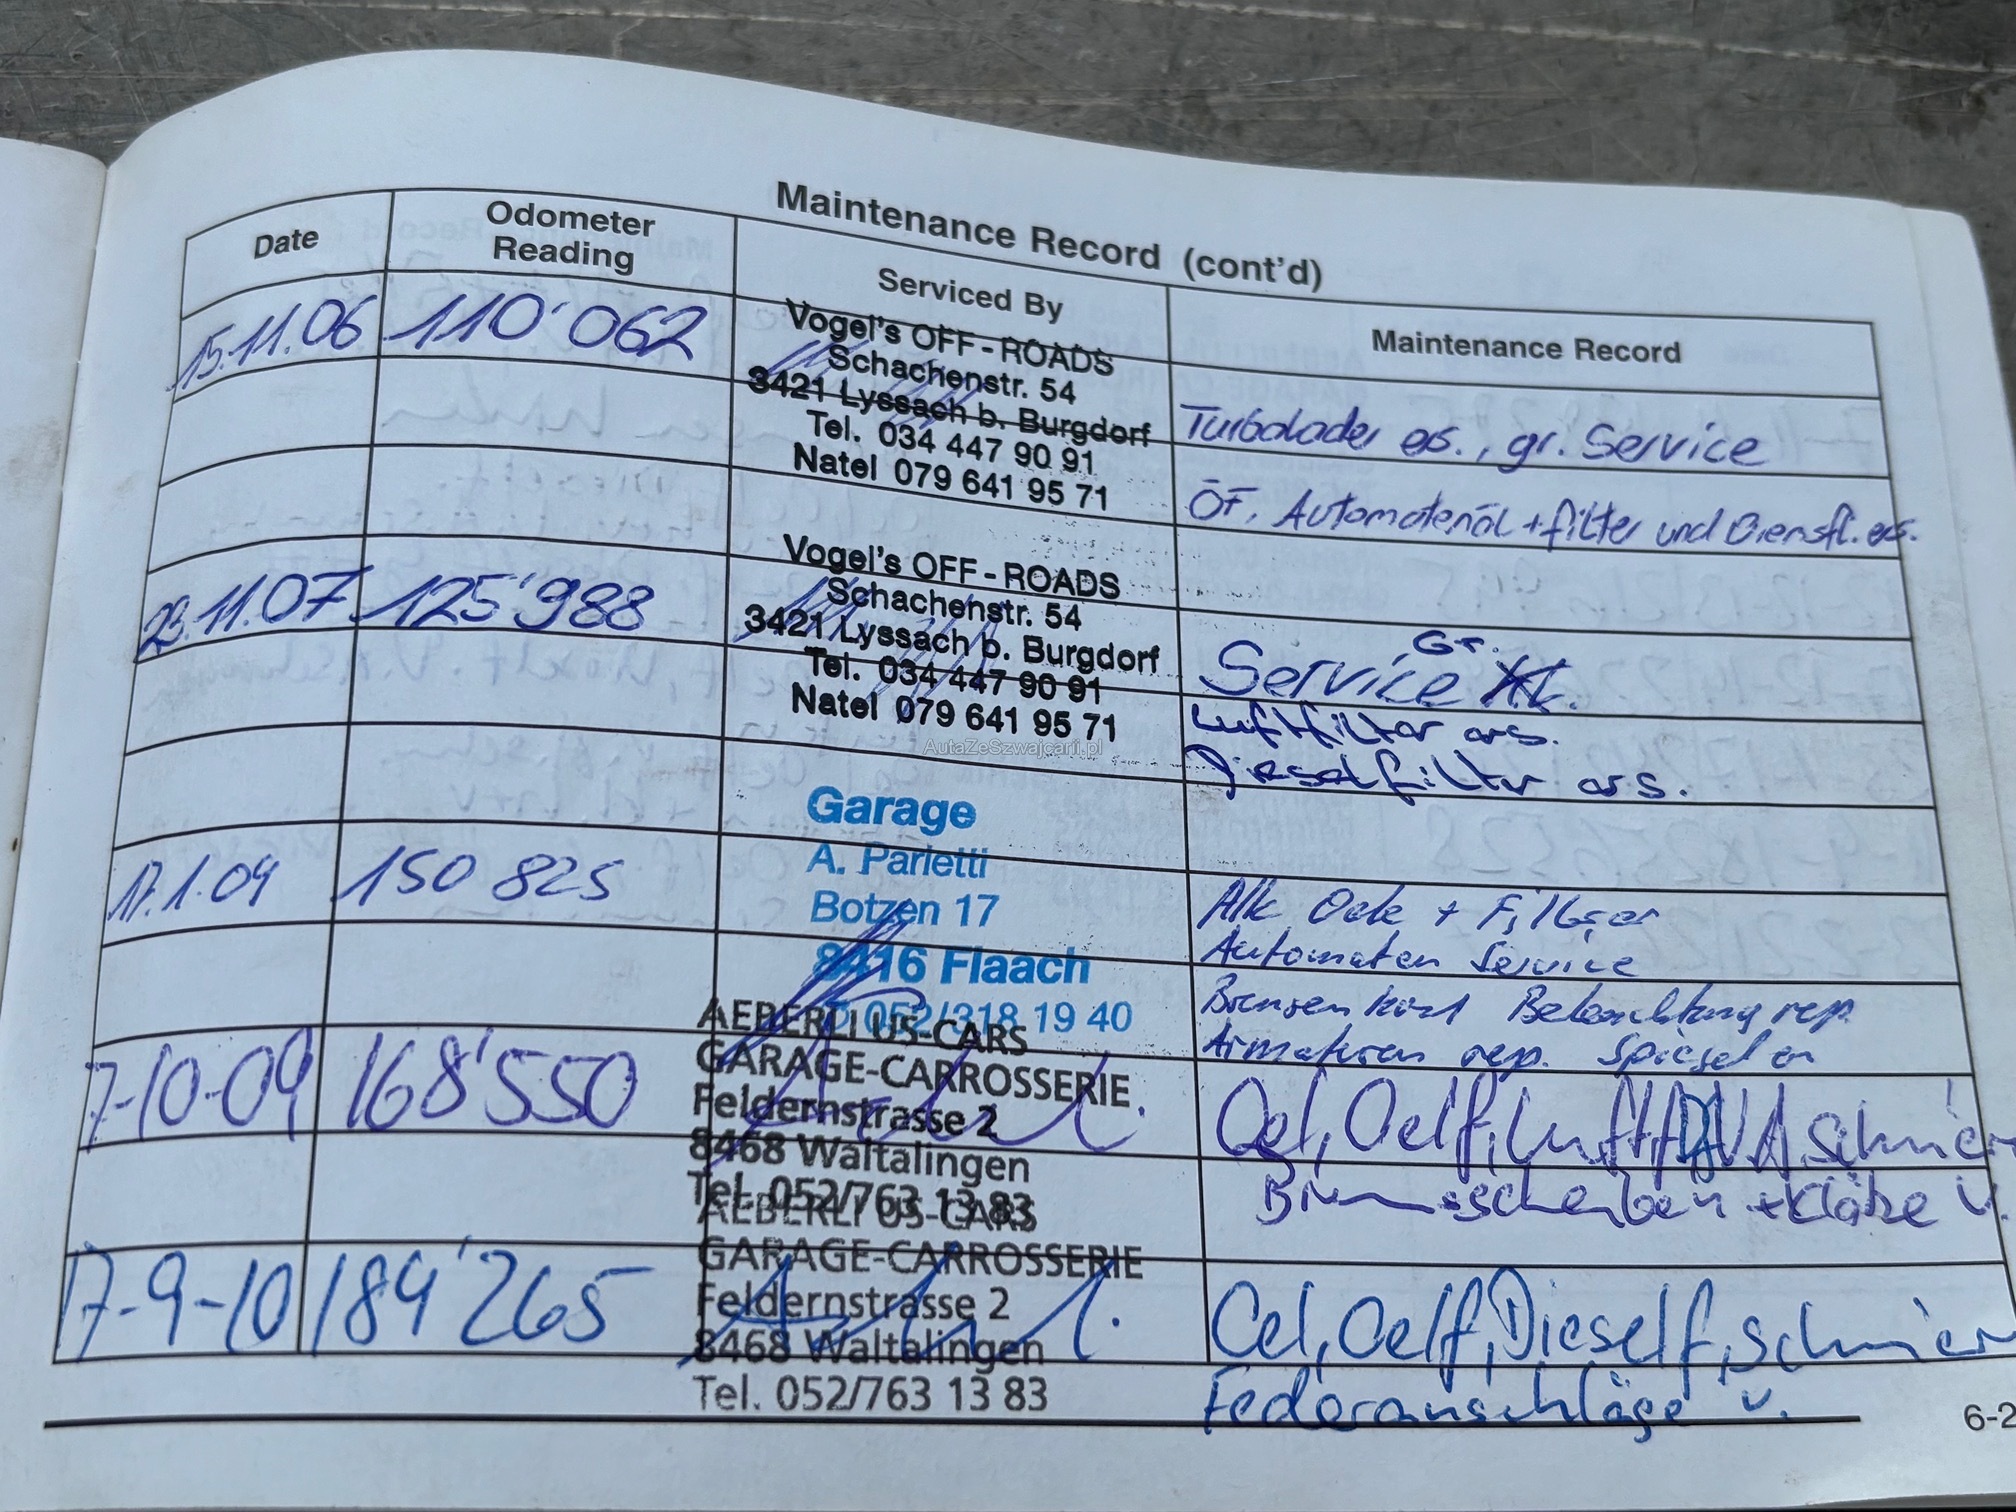 Maintenance Record (cont'd)
Date
Odometer
Reading
Serviced By
Maintenance Record
15.11.06
110'062
Vogel's OFF-ROADS
Schachenstr. 54
3421 Lyssach b. Burgdorf
Tel. 034 447 90 91
Natel 079 641 95 71
Turbolader ers., gr. Service
ÖF, Automatenöl + filter und Dienstl. ers.
23.11.07
125'988
Vogel's OFF-ROADS
Schachenstr. 54
3421 Lyssach b. Burgdorf
Tel. 034 447 90 91
Natel 079 641 95 71
Gr.
Service
Luftfilter ers.
Dieselfilter ers.
AutaZeSzwajcarii.pl
17.1.09
150 825
Garage
A. Parletti
Botzen 17
8416 Flaach
052/318 19 40
Alle Oele + Filter
Automaten Service
Bremsen Beleuchtung rep.
Armaturen rep. Spiegel
7-10-09
168'550
AEBERLI US-CARS
GARAGE-CARROSSERIE
Feldernstrasse 2
8468 Waltalingen
Tel. 052/763 13 83
Oel, Oelf, Luftf, schmier
Bremsscheiben + Klötze v.
17-9-10
184'265
AEBERLI US-CARS
GARAGE-CARROSSERIE
Feldernstrasse 2
8468 Waltalingen
Tel. 052/763 13 83
Oel, Oelf, Dieself, schmier
Federanschläge v.
6-2